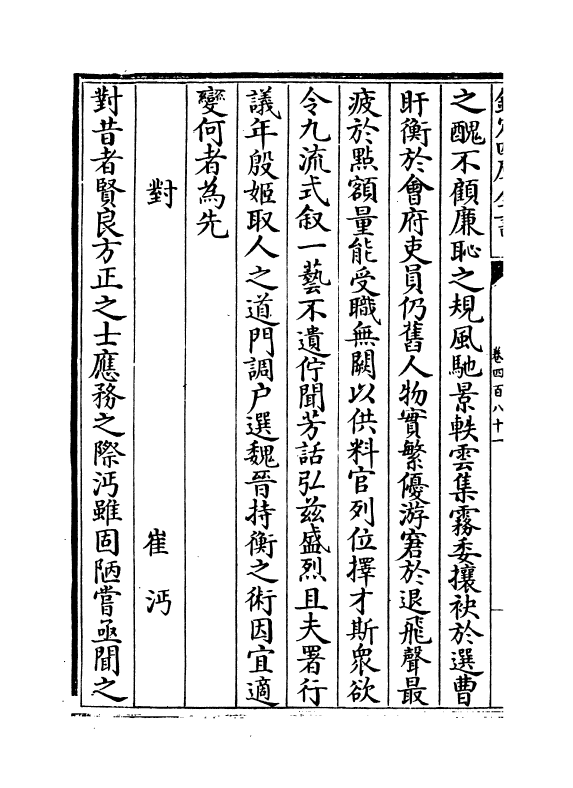 卷四百八十一
之醜不顧廉恥之規風馳景軼雲集霧委攘袂於選曹
盱衡於會府吏員仍舊人物實繁優游窘於退飛聲最
疲於點額量能受職無闕以供料官列位擇才斯衆欲
令九流式叙一藝不遺佇聞芳話弘兹盛烈且夫署行
議年殷姬取人之道門調户選魏晉持衡之術因宜適
變何者為先
對　崔沔
對昔者賢良方正之士應務之際沔雖固陋嘗亟聞之